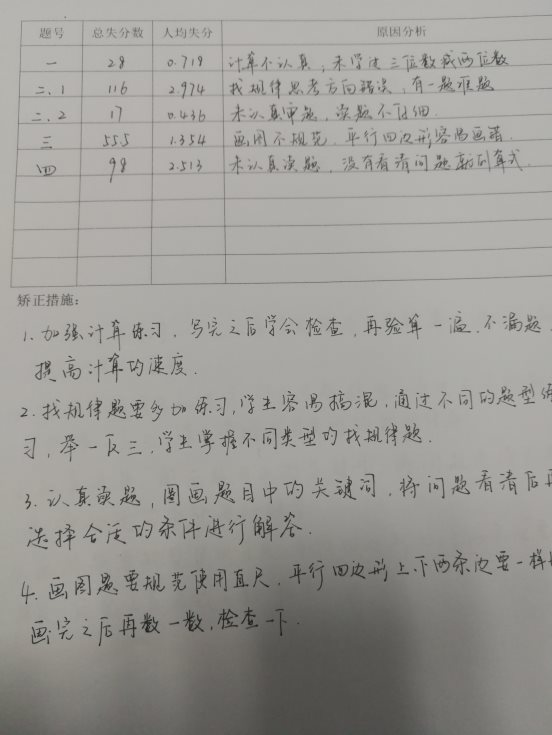 题号 总失分数 人均失分 原因分析
一 28 0.719 计算不认真，未学过三位数减两位数
二.1 116 2.974 找规律思考方向错误，有一题难题
二.2 17 0.436 未认真审题，读题不仔细.
三 555 1.354 画图不规范，平行四边形容易画错.
四 98 2.513 未认真读题，没有看清问题就列算式.
矫正措施：
1. 加强计算练习，写完之后学会检查，再验算一遍，不漏题，
提高计算的速度.
2. 找规律题要多加练习，学生容易搞混，通过不同的题型练
习，举一反三，学生掌握不同类型的找规律题.
3. 认真读题，圈画题目中的关键词，将问题看清后再
选择合适的条件进行解答.
4. 画图题要规范使用直尺，平行四边形上下两条边要一样
画完之后再数一数，检查一下.